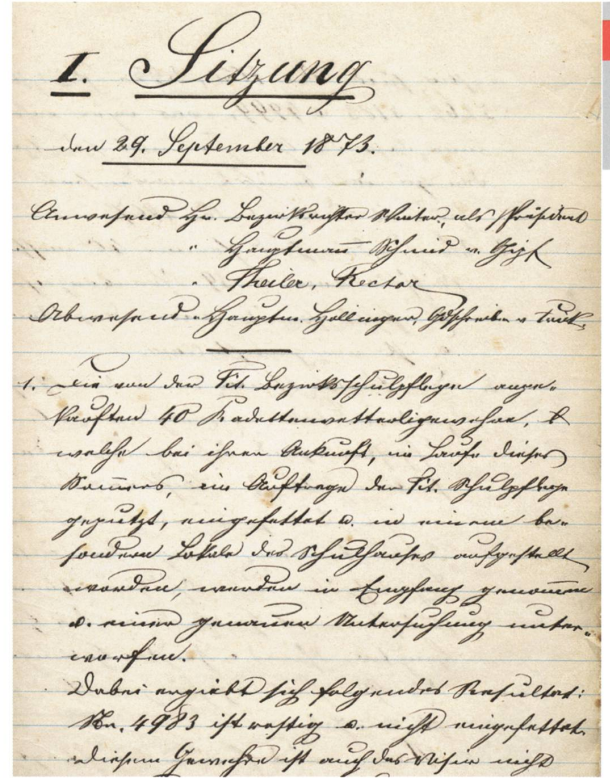 I. Sitzung
den 29. September 1873.
Anwesend Hr. Bezirksrichter Winter, als Präsident
" Hauptmann Schmid v. Gipf
" Theiler, Rector
Abwesend " Hauptm. Hollinger, Gdschreiber v
1. Die von der Tit. Bezirksschulpflege ange-
kauften 40 Kadettenvetterligewehre,
welche bei ihrer Ankunft, im Laufe dieses
Sommers, im Auftrage der Tit. Schulpflege
geputzt, eingefettet u. in einem be-
sondern Lokale des Schulhauses aufgestellt
worden, werden in Empfang genommen
u. einer genauen Untersuchung unter-
worfen.
Dabei ergiebt sich folgendes Resultat:
No. 4983 ist rostig u. nicht eingefettet.
Diesem Gewehre ist auch das Visir nicht